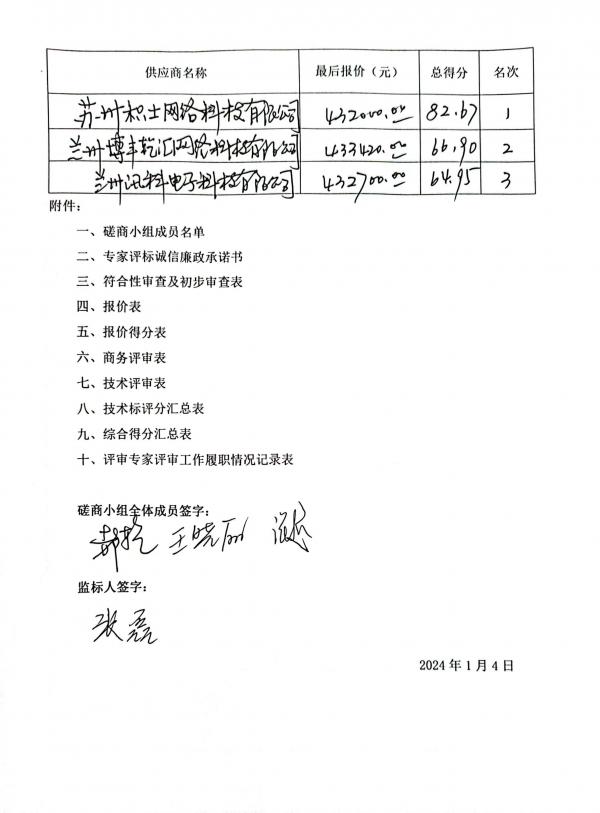 供应商名称 最后报价（元） 总得分 名次
苏州积士网络科技有限公司 432000.00 82.67 1
兰州博丰乾汇网络科技有限公司 433420.00 66.90 2
兰州讯科电子科技有限公司 432700.00 64.95 3
附件：
一、磋商小组成员名单
二、专家评标诚信廉政承诺书
三、符合性审查及初步审查表
四、报价表
五、报价得分表
六、商务评审表
七、技术评审表
八、技术标评分汇总表
九、综合得分汇总表
十、评审专家评审工作履职情况记录表
磋商小组全体成员签字：
王晓丽
监标人签字：
张磊
2024年1月4日